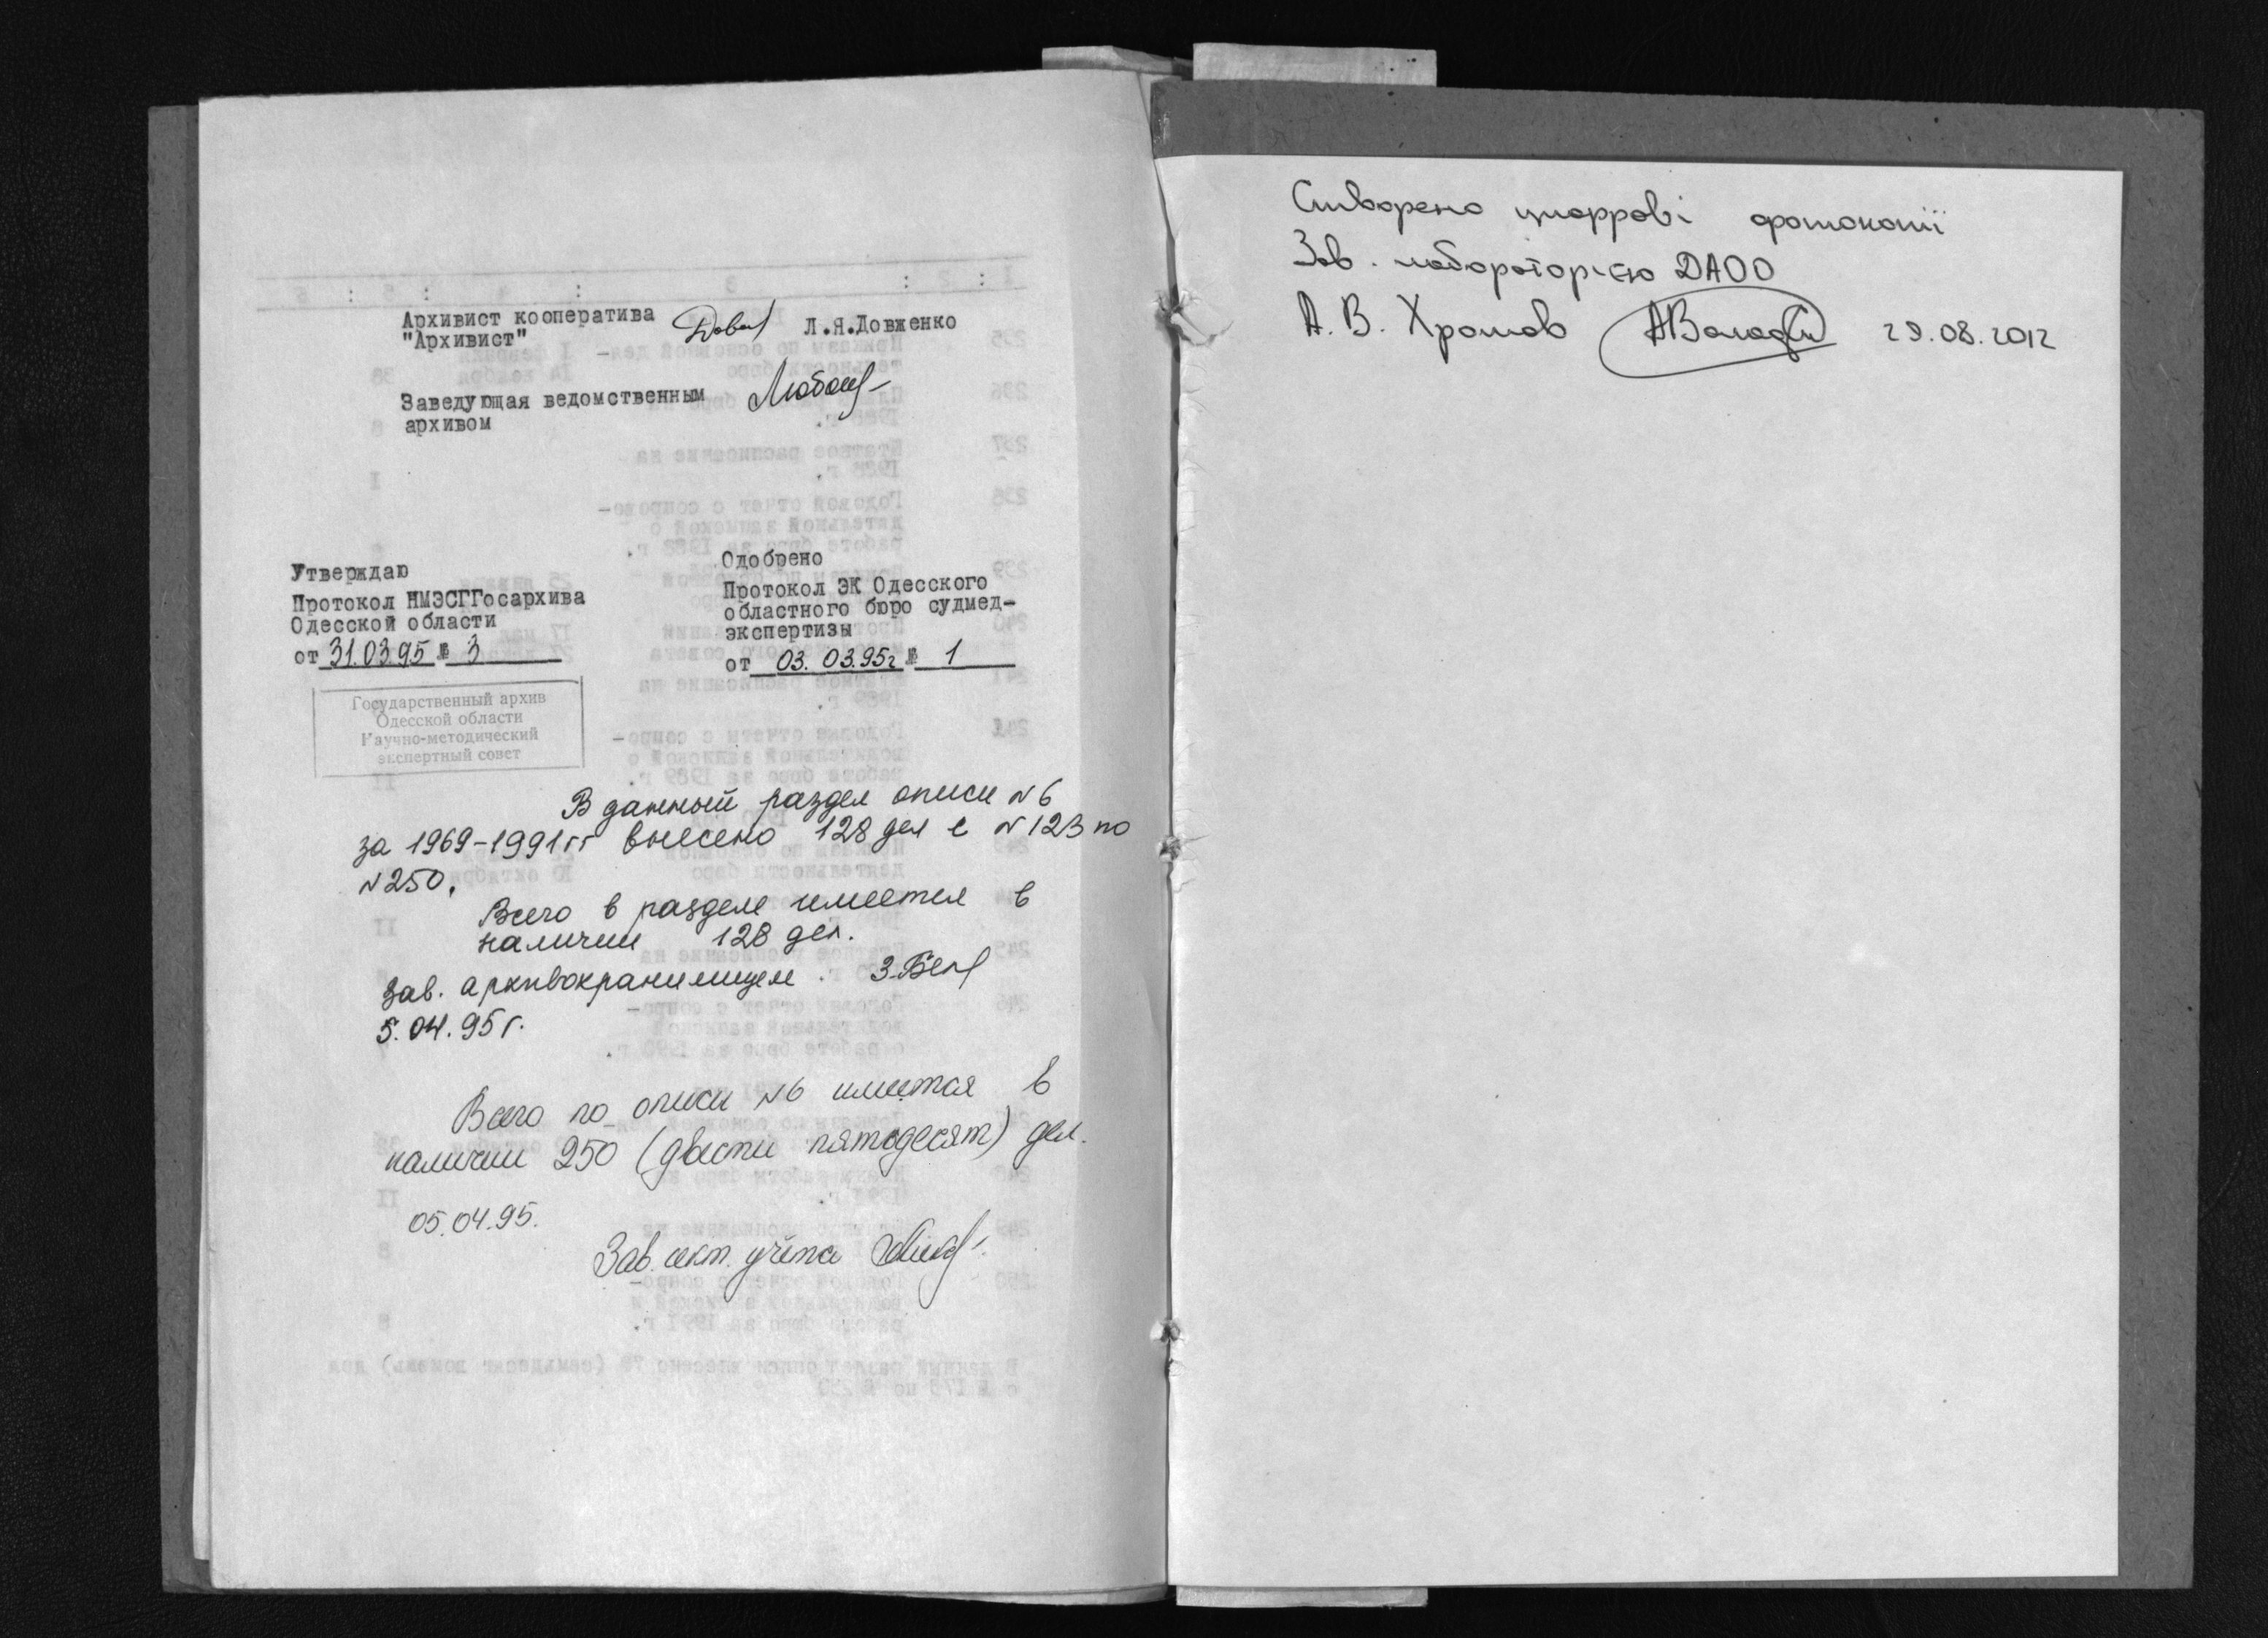 Архивист кооператива
"Архивист" Л.Я.Довженко
Заведующая ведомственным
архивом
Утверждаю
Протокол НМЭСГГосархива
Одесской области
от 31.03.95 № 3
Одобрено
Протокол ЭК Одесского
областного бюро судмед-
экспертизы
от 03. 03.95г № 1
Государственный архив
Одесской области
Научно-методический
экспертный совет
В данный раздел описи N 6
за 1969-1991гг внесено 128 дел с N 123 по
N 250.
Всего в разделе имеется в
наличии 128 дел.
Зав. архивохранилищем
5.04.95г.
Всего по описи N 6 имеется в
наличии 250 (двести пятьдесят) дел.
05.04.95.
Зав. сект. учёта
Створено цифрові фотокопії
Зав. лабораторією ДАОО
А. В. Хромов 29.08.2012